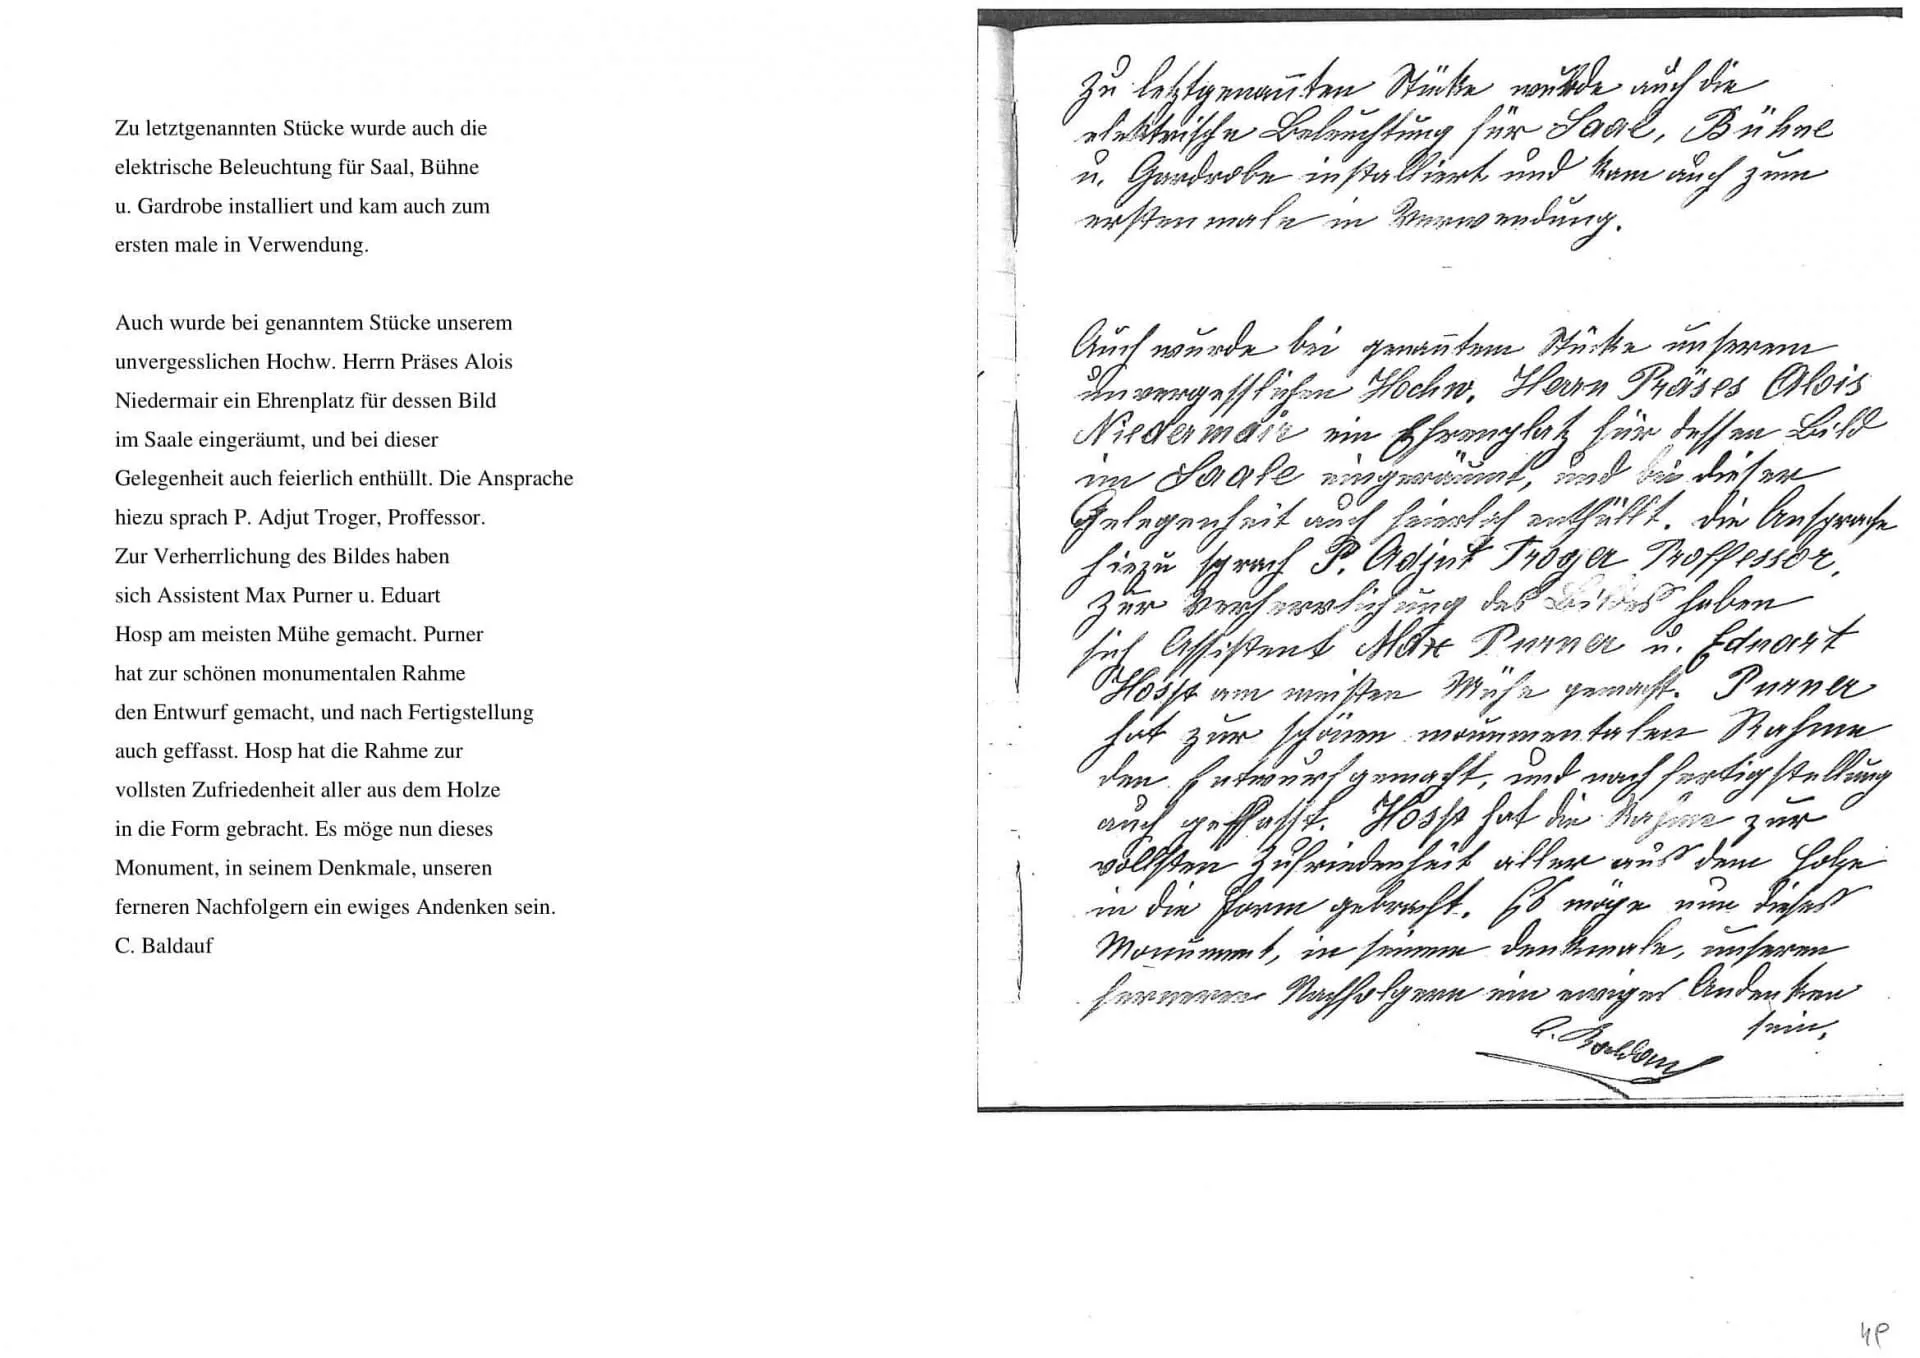 Zu letztgenannten Stücke wurde auch die
elektrische Beleuchtung für Saal, Bühne
u. Gardrobe installiert und kam auch zum
ersten male in Verwendung.
Auch wurde bei genanntem Stücke unserem
unvergesslichen Hochw. Herrn Präses Alois
Niedermair ein Ehrenplatz für dessen Bild
im Saale eingeräumt, und bei dieser
Gelegenheit auch feierlich enthüllt. Die Ansprache
hiezu sprach P. Adjut Troger, Proffessor.
Zur Verherrlichung des Bildes haben
sich Assistent Max Purner u. Eduart
Hosp am meisten Mühe gemacht. Purner
hat zur schönen monumentalen Rahme
den Entwurf gemacht, und nach Fertigstellung
auch geffasst. Hosp hat die Rahme zur
vollsten Zufriedenheit aller aus dem Holze
in die Form gebracht. Es möge nun dieses
Monument, in seinem Denkmale, unseren
ferneren Nachfolgern ein ewiges Andenken sein.
C. Baldauf
Zu letztgenannten Stücke wurde auch die
elektrische Beleuchtung für Saal, Bühne
u. Gardrobe installiert und kam auch zum
ersten male in Verwendung.
Auch wurde bei genanntem Stücke unserem
unvergesslichen Hochw. Herrn Präses Alois
Niedermair ein Ehrenplatz für dessen Bild
im Saale eingeräumt, und bei dieser
Gelegenheit auch feierlich enthüllt. Die Ansprache
hiezu sprach P. Adjut Troger Proffessor.
Zur Verherrlichung des Bildes haben
sich Assistent Max Purner u. Eduart
Hosp am meisten Mühe gemacht. Purner
hat zur schönen monumentalen Rahme
den Entwurf gemacht, und nach Fertigstellung
auch geffasst. Hosp hat die Rahme zur
vollsten Zufriedenheit aller aus dem Holze
in die Form gebracht. Es möge nun dieses
Monument, in seinem Denkmale, unseren
ferneren Nachfolgern ein ewiges Andenken
sein.
C. Baldauf